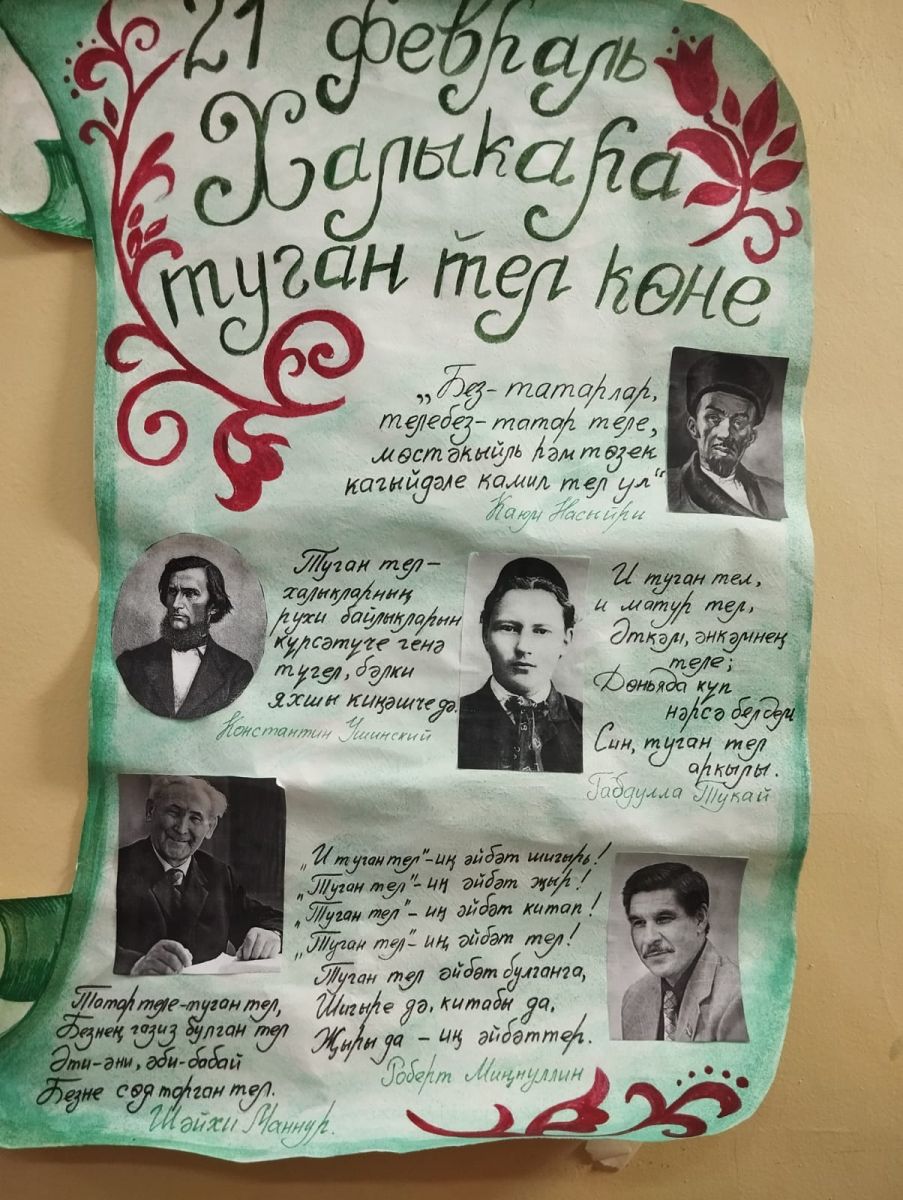 21 февраль
Халыкара
туган тел көне
„Без - татарлар,
телебез - татар теле,
мөстәкыйль һәм төзек
кагыйдәле камил тел ул“
Каюм Насыйри
Туган тел –
халыкларның
рухи байлыкларын
күрсәтүче генә
түгел, бәлки
яхшы киңәшче дә.
Константин Ушинский
И туган тел,
и матур тел,
Әткәм, әнкәмнең
теле;
Дөньяда күп
нәрсә белдем
Син, туган тел
аркылы.
Габдулла Тукай
Татар теле - туган тел,
Безнең газиз булган тел
Әти-әни, әби-бабай
Безне сөя торган тел.
Шәйхи Маннур.
„И туган тел“ - иң әйбәт шигырь!
„Туган тел“ - иң әйбәт җыр!
„Туган тел“ - иң әйбәт китап!
„Туган тел“ - иң әйбәт тел!
Туган тел әйбәт булганга,
Шигыре дә, китабы да,
Җыры да – иң әйбәттер.
Роберт Миңнуллин